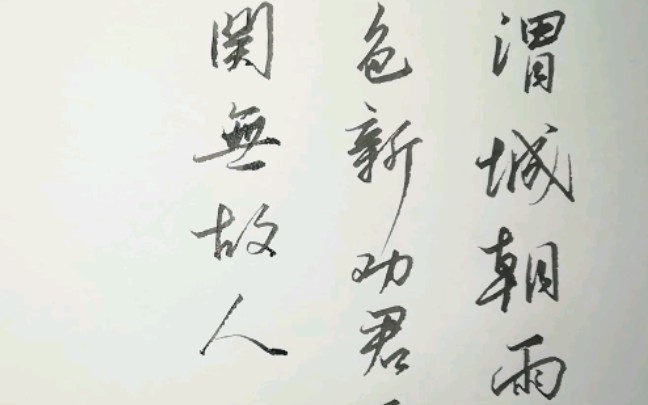 渭城朝雨
色新劝君
関無故人